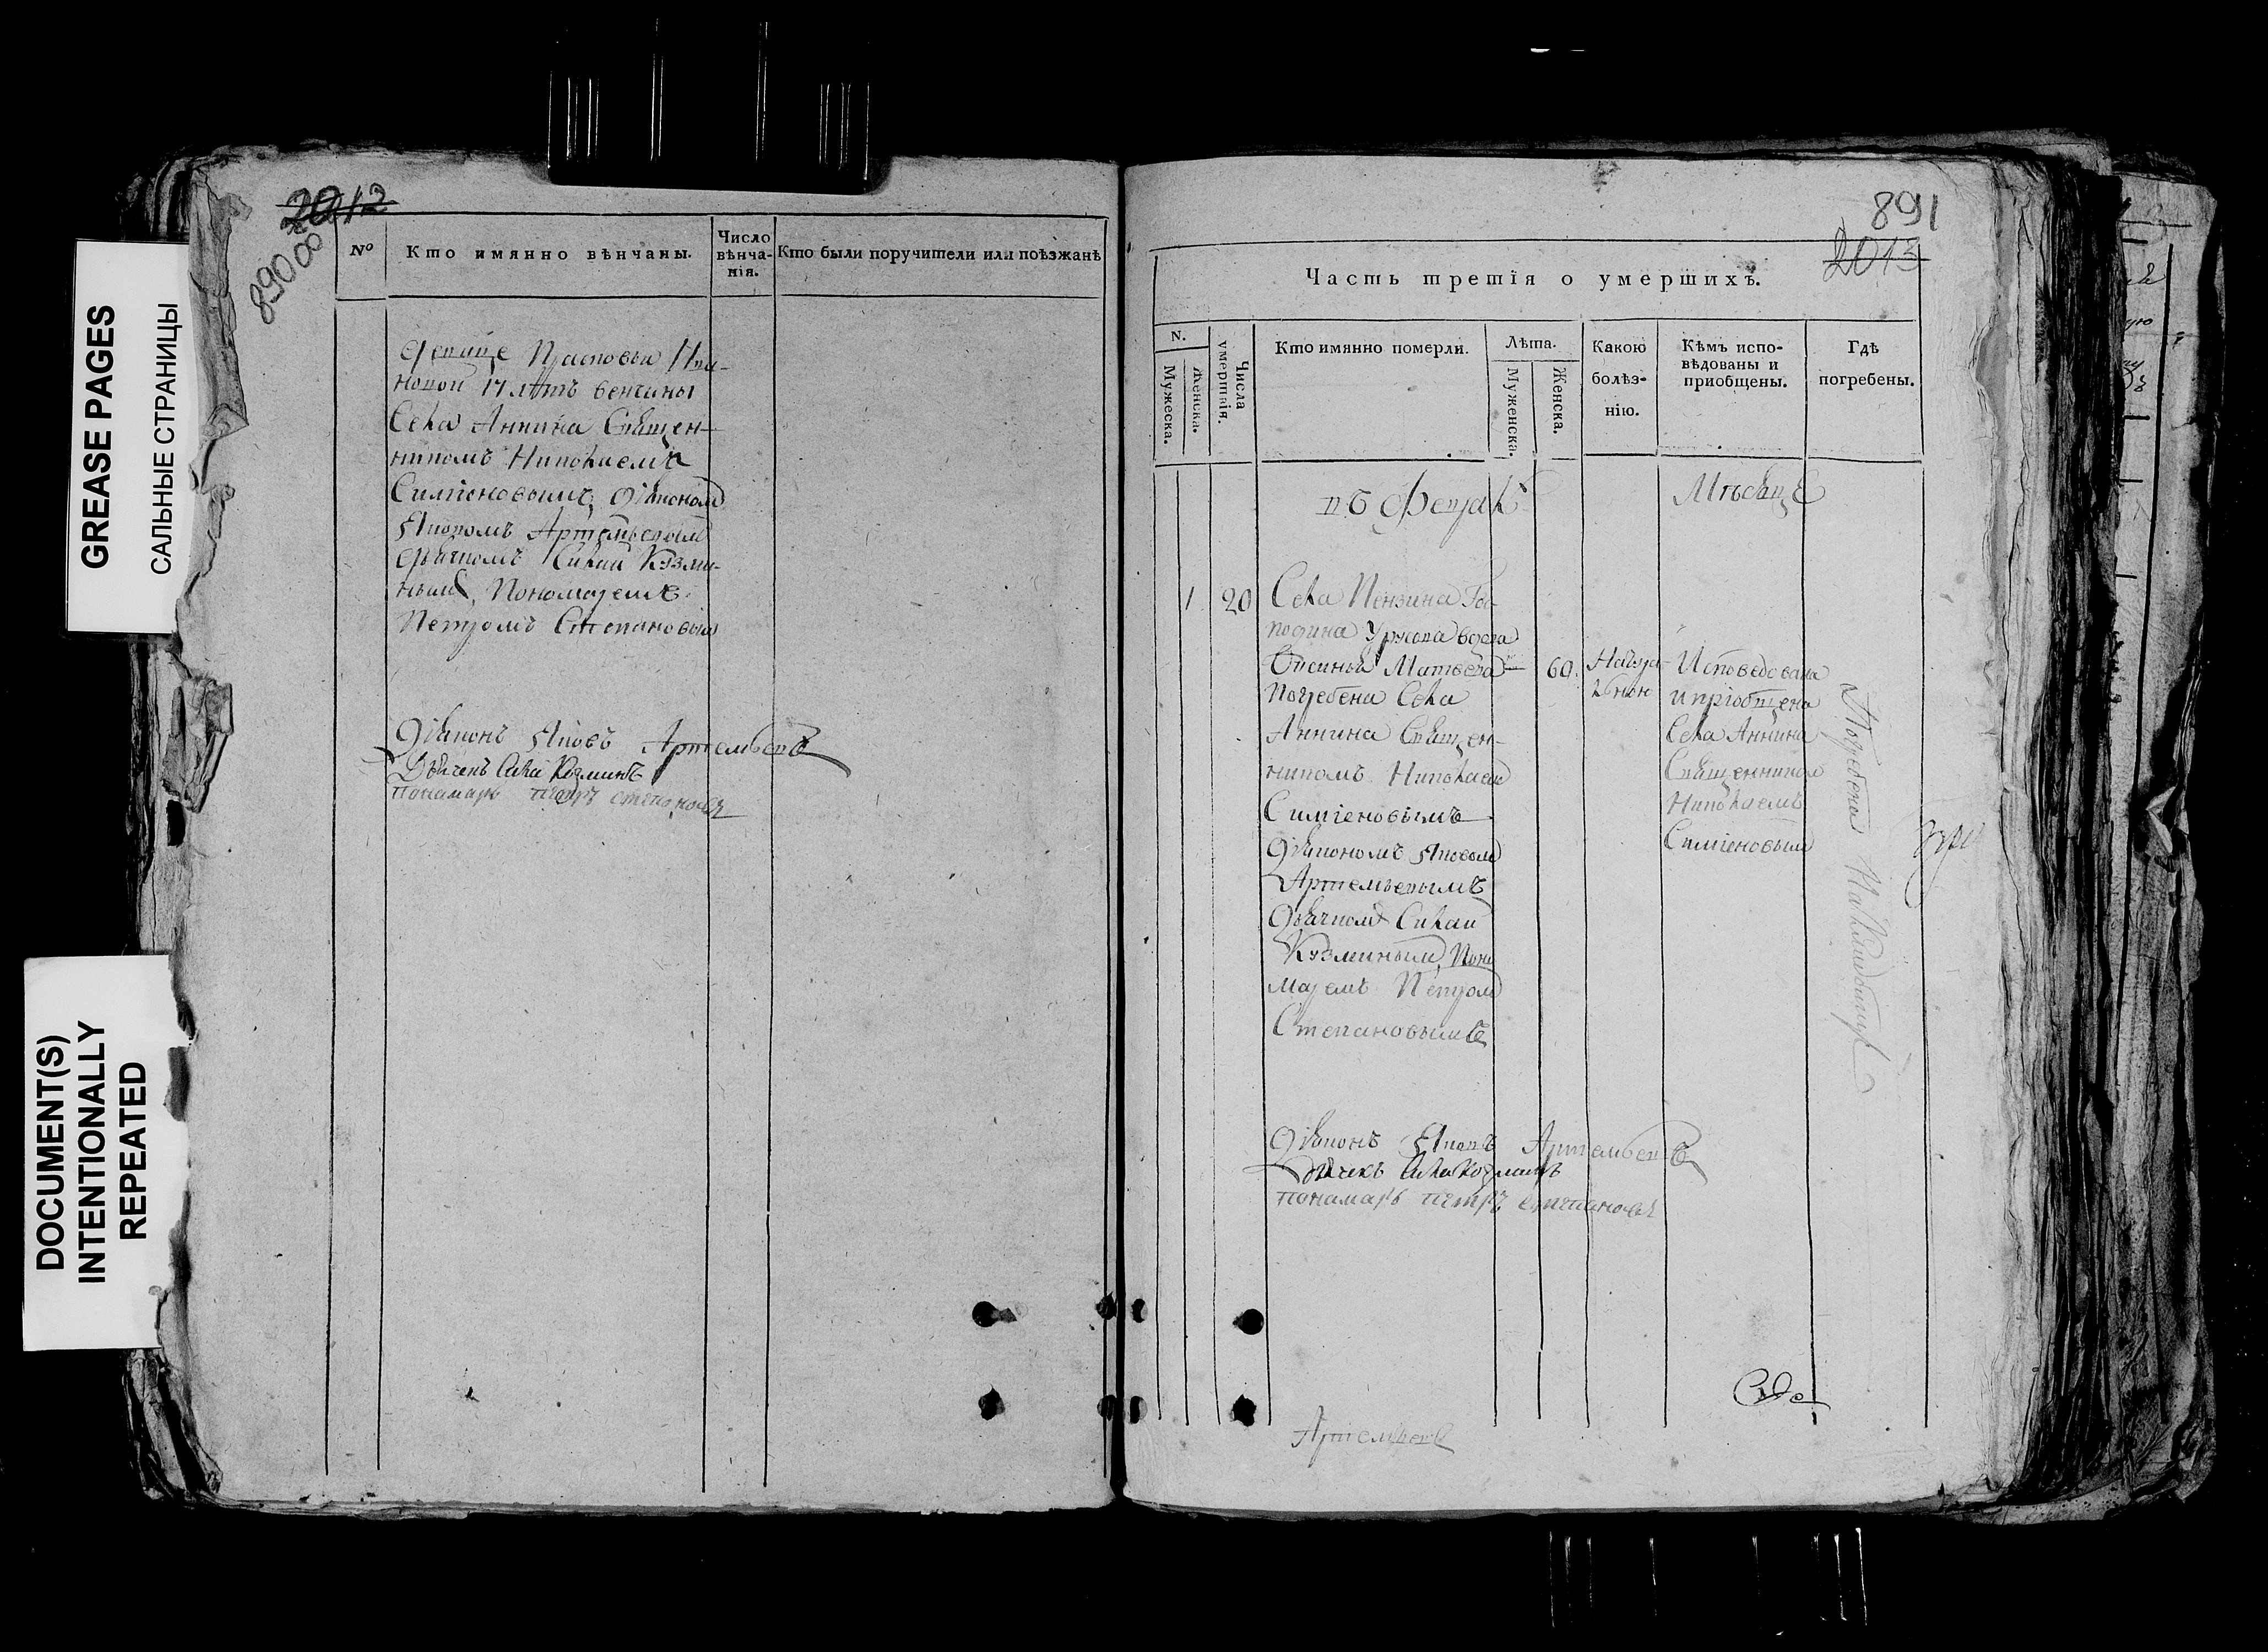 GREASE PAGES
САЛЬНЫЕ СТРАНИЦЫ
DOCUMENT(S)
INTENTIONALLY
REPEATED
2012
890 об
№
Кто имянно вѣнчаны.
Число
вѣнча-
нія.
Кто были поручители или поѣзжанѣ
девице
17 летъ венчаны
Села Аннина Священ-
никомъ Николаемъ
Симіоновымъ Діякономъ
Яковомъ Артемьевымъ
дьячкомъ Силой Кузми-
нымъ, Пономаремъ
Петромъ Степановымъ
Діяконъ Яковъ Артемьевъ
Дьячекъ Сила Козминъ
понамарь петръ степановъ
891
2013
Часть третія о умершихъ.
N.
Мужеска.
Женска.
Числа
умертвія.
Кто имянно померли.
Лѣта.
Муженска.
Женска.
Какою
болѣз-
нію.
Кѣмъ испо-
вѣдованы и
пріобщены.
Гдѣ
погребены.
въ Февралѣ
Мѣсяцѣ
1 20 Села Пензина Гос-
подина вдова
Матвеева 60
погребена Села
Аннина Священ-
никомъ Николаемъ
Симіеновымъ
Діякономъ Яковомъ
Артемьевымъ
Дьячкомъ Силай
Кузминымъ, Поно
маремъ Петромъ
Степановымъ
Исповедована
и пріобщена
Села Аннина
Священникомъ
Николаемъ
Симіеновымъ
Погребена На Кладбищѣ
Діяконъ Яковъ Артемьевъ
Дьячекъ Сила Козминъ
понамарь петръ степановъ
Артемьевъ